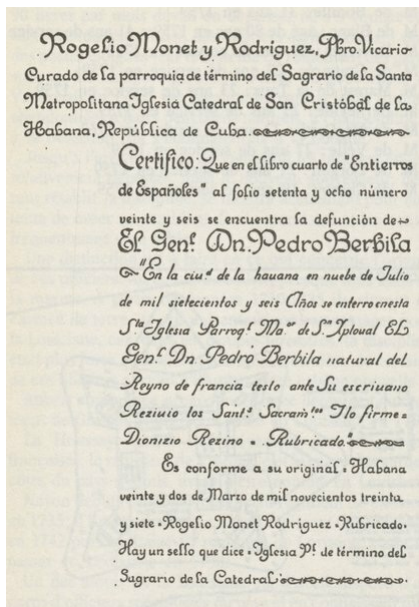 Rogelio Monet y Rodríguez, Pbro. Vicario
Curado de la parroquia de término del Sagrario de la Santa
Metropolitana Iglesia Catedral de San Cristóbal de la
Habana, República de Cuba.
Certifico: Que en el libro cuarto de "Entierros
de Españoles" al folio setenta y ocho número
veinte y seis se encuentra la defunción de
El Genˡ. Dn. Pedro Berbila
"En la ciuᵈ de la hauana en nuebe de Julio
de mil sietecientos y seis Años se enterro enesta
Sᵗᵃ Iglesia Parroqˡ Maᵒʳ de Sⁿ Xptoual EL
Genˡ Dn Pedro Berbila natural del
Reyno de francia testo ante Su escriuano
Reziuio los Santˢ Sacramᵗᵒˢ I lo firme=
Dionizio Rezino . Rubricado."
Es conforme a su original. Habana
veinte y dos de Marzo de mil novecientos treinta
y siete. Rogelio Monet Rodriguez. Rubricado.
Hay un sello que dice. Iglesia Pˡ de término del
Sagrario de la Catedral.